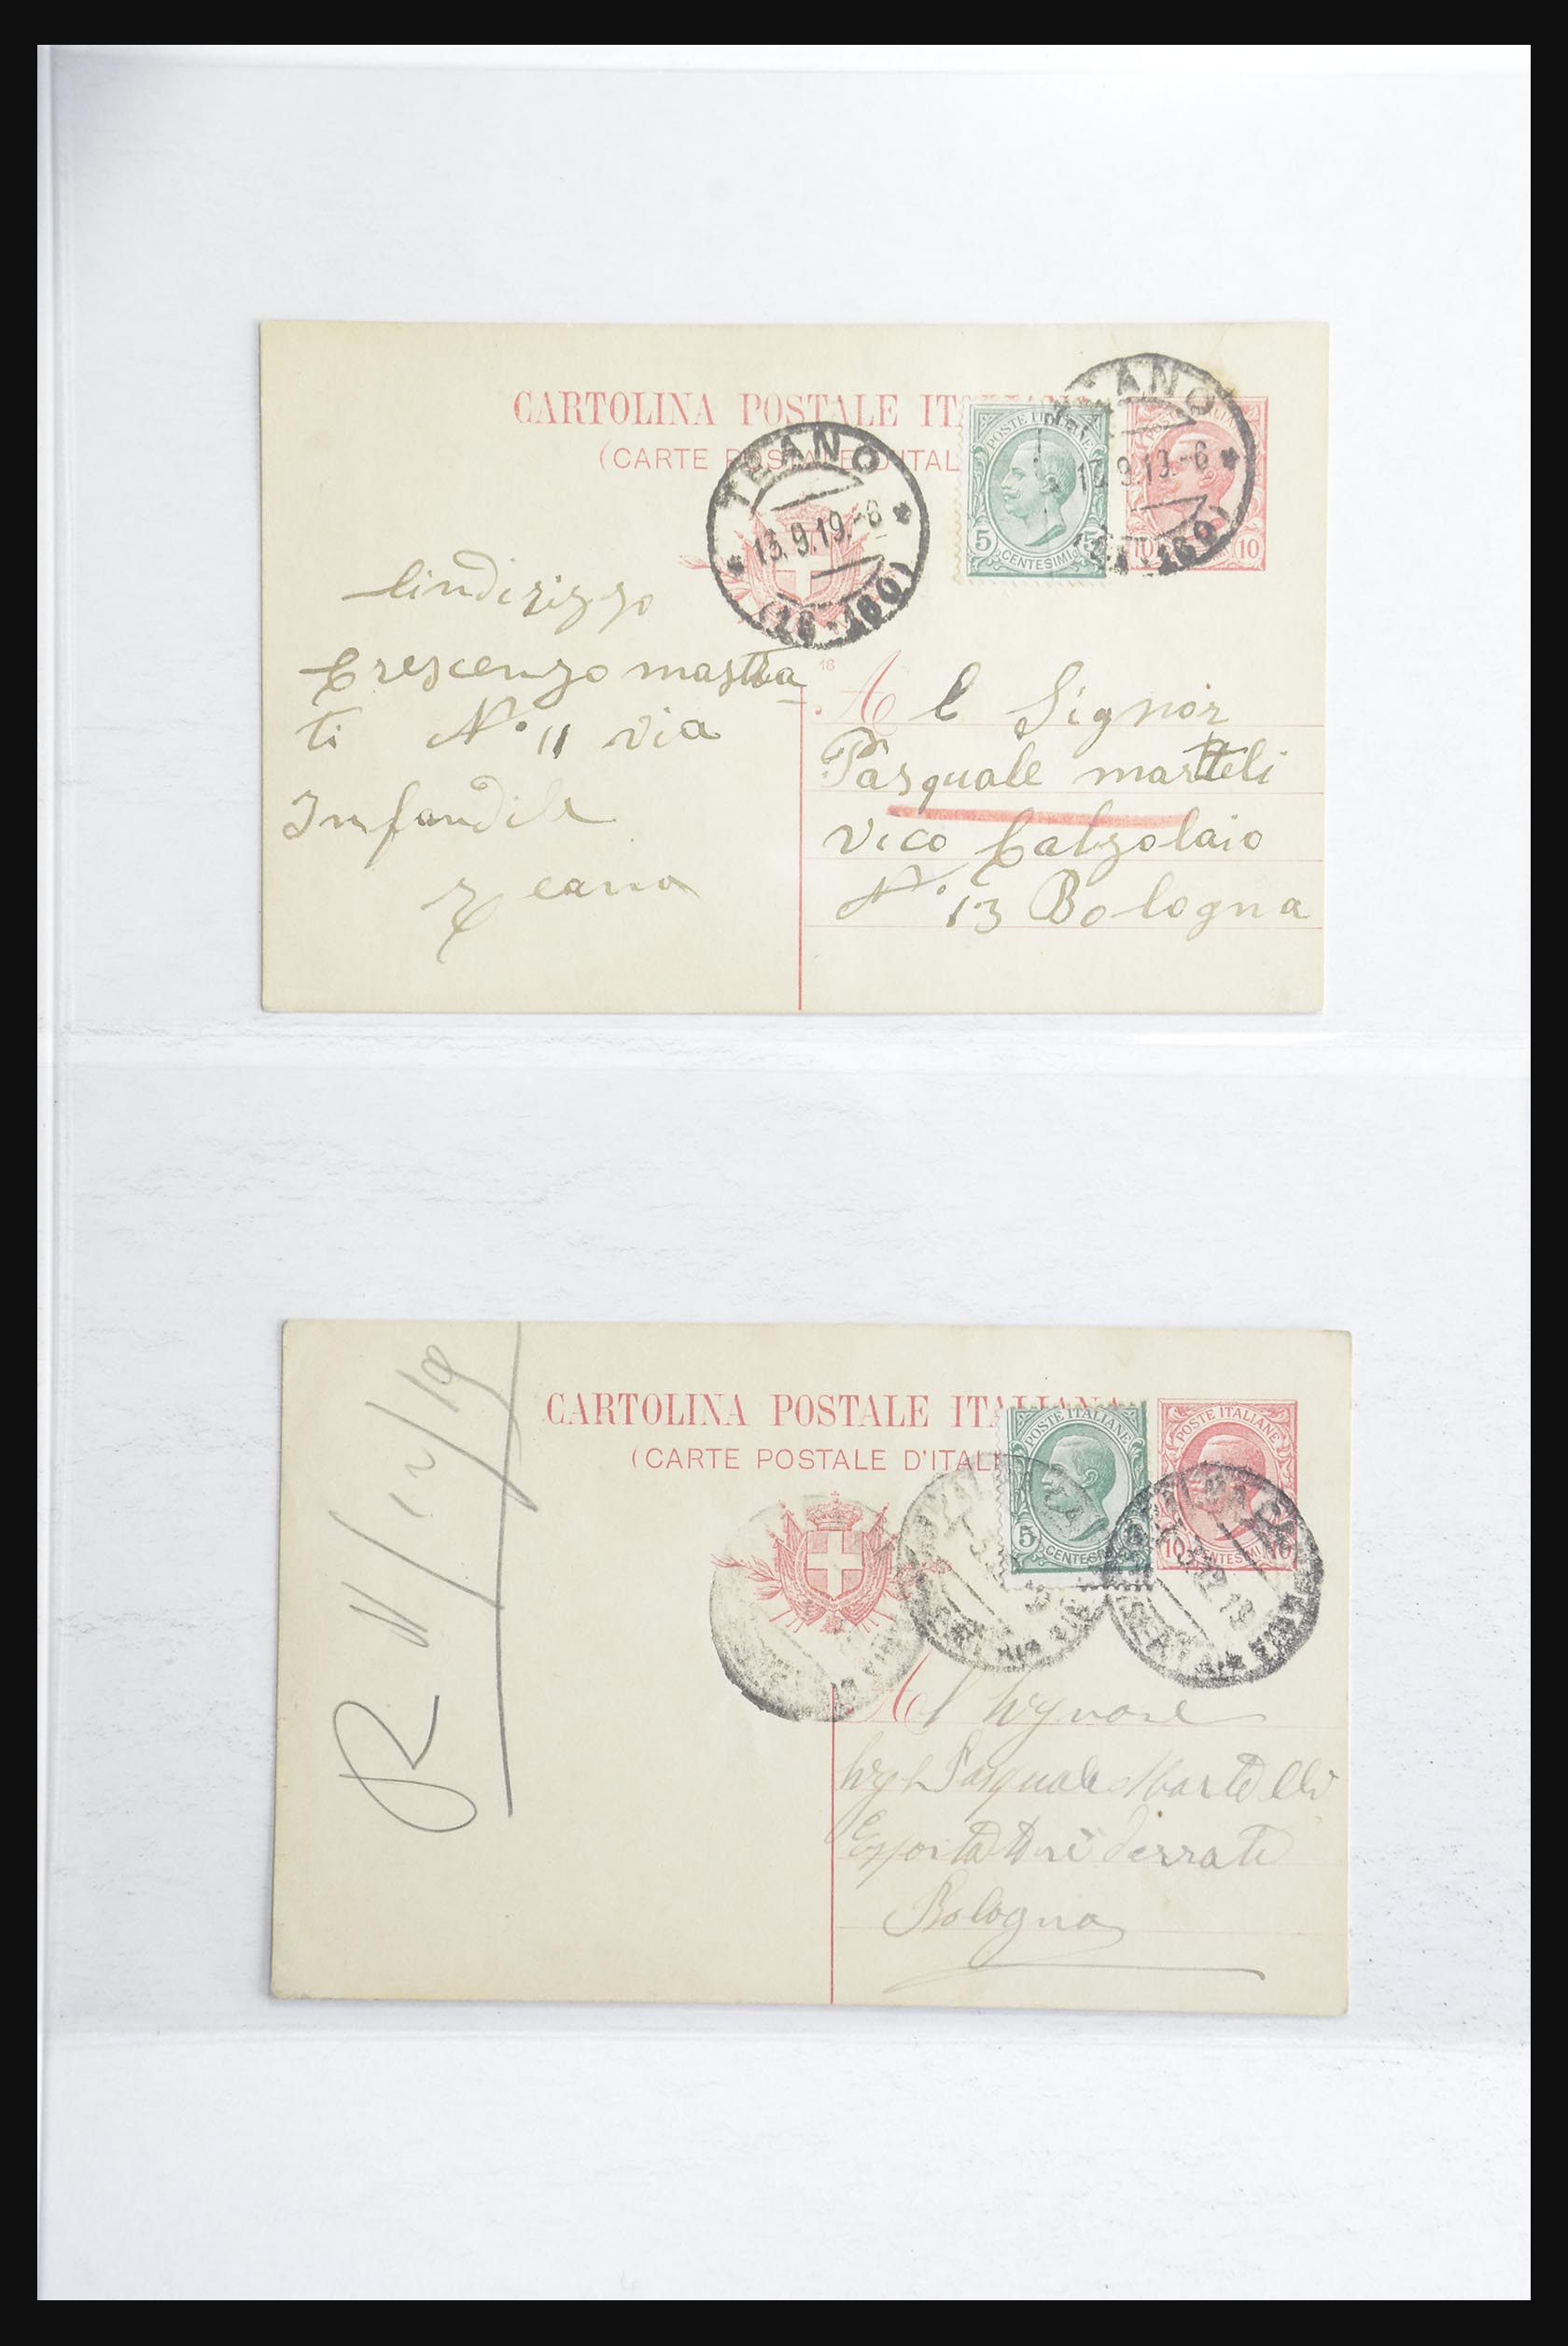 CARTOLINA POSTALE ITALIANA
(CARTE POSTALE D'ITAL
POSTE ITALIANE
5 CENTESIMI 5
10 10
TEANO
13.9.19.-6
(16-160)
TEANO
13.9.19.-6
160)
lindirizzo
Crescenzo mastra
ti N° 11 via
Infandile
Teano
18
Al Signor
Pasquale marteli
vico Calzolaio
N° 13 Bologna
CARTOLINA POSTALE ITALIANA
(CARTE POSTALE D'ITALI
POSTE ITALIANE
5 CENTESIMI
POSTE ITALIANE
10 CENTESIMI 10
R 11/12/19
Al Signore
Sigr Pasquale Martelli
Esportatore derrate
Bologna